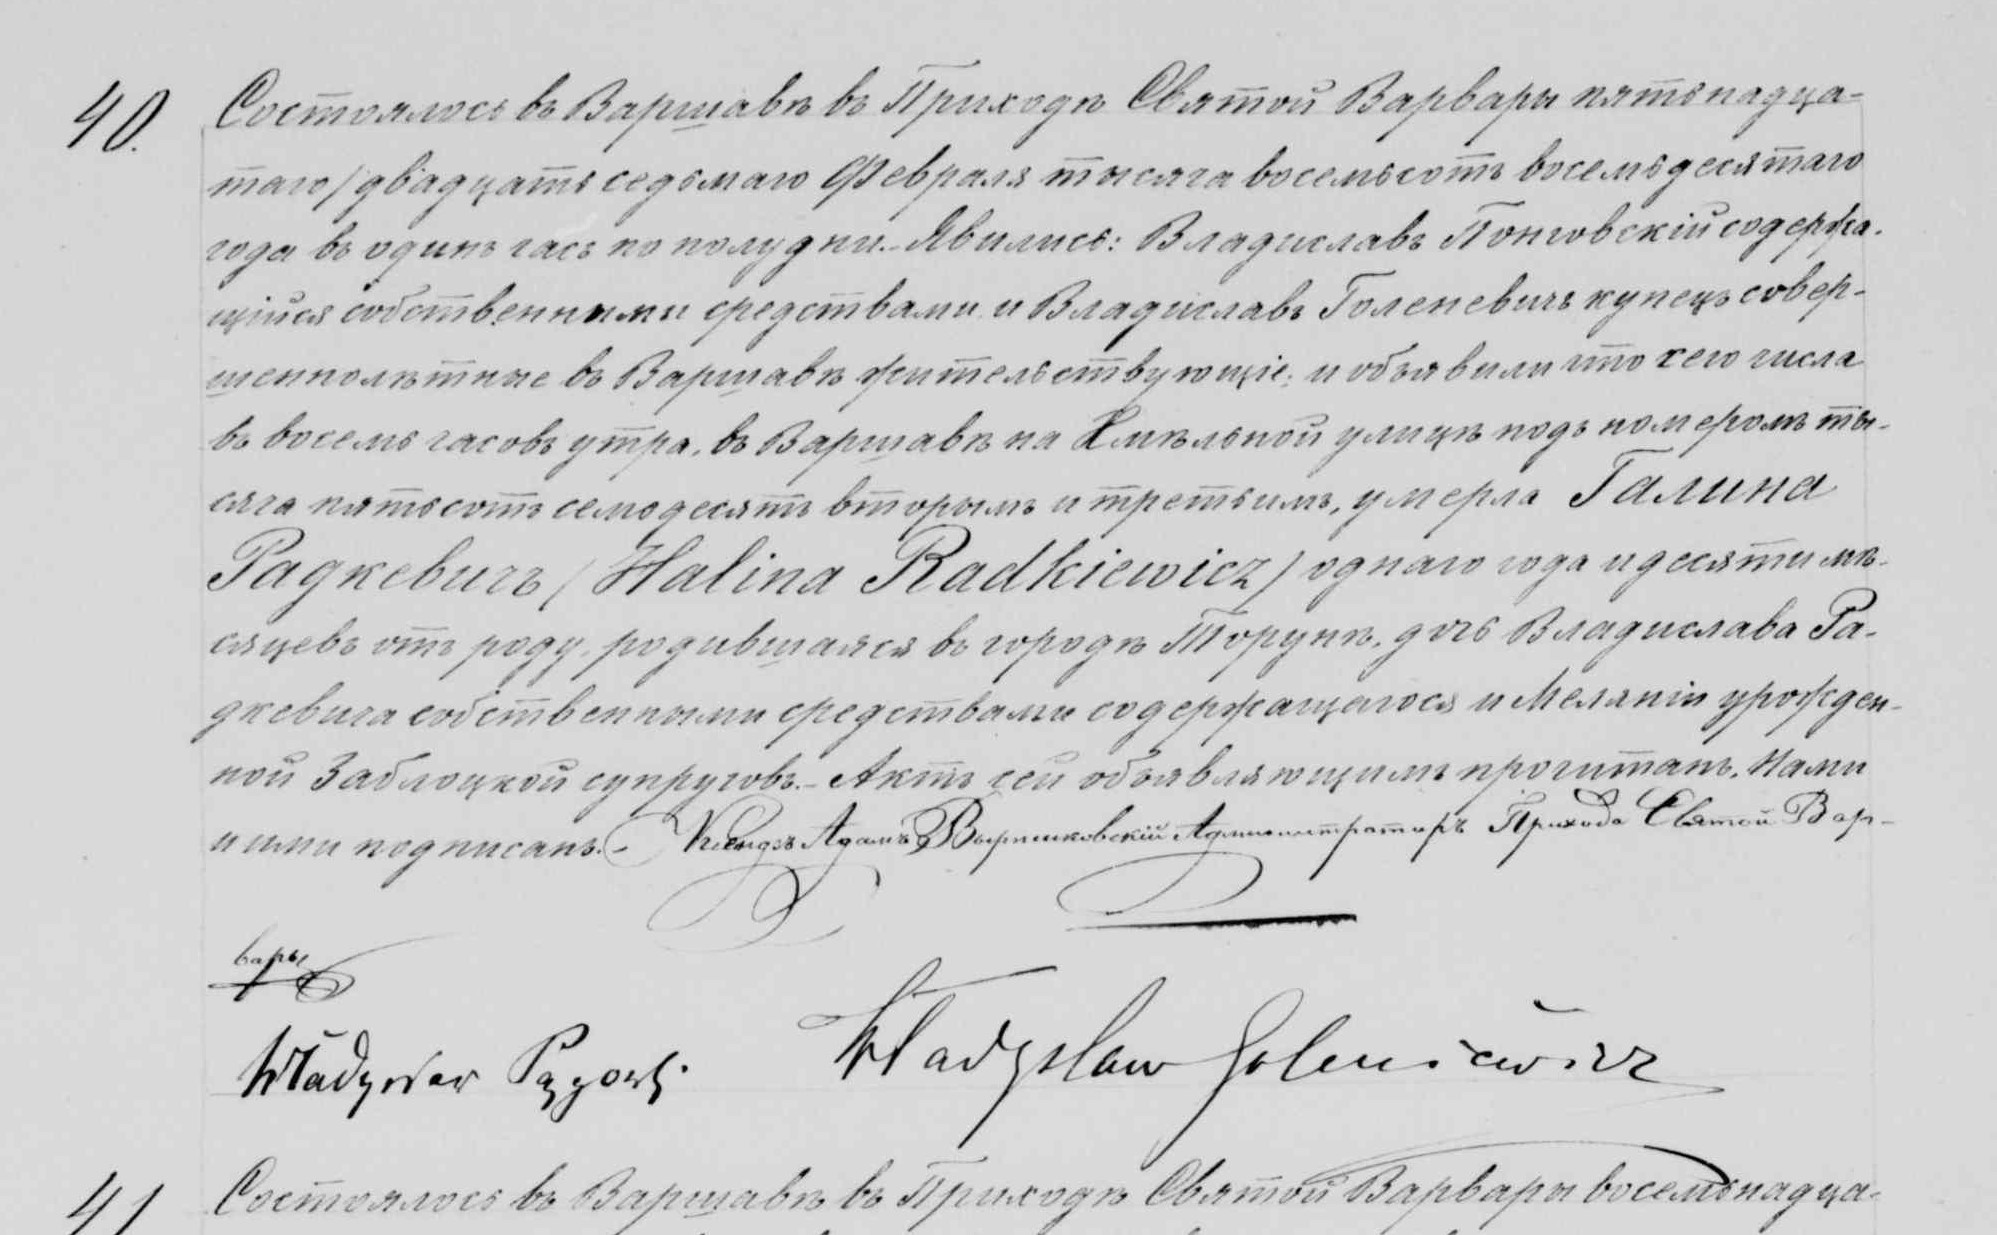 40. Состоялось въ Варшавѣ въ Приходѣ Святой Варвары пятьнадца-
таго/двадцать седьмаго Февраля тысяча восемьсотъ восемьдесятаго
года въ одинъ часъ по полудни. Явились: Владиславъ Понговскій содержа-
щійся собственными средствами и Владиславъ Голеневичъ купецъ совер-
шеннолѣтные въ Варшавѣ жительствующіе, и объявили что сего числа
въ восемь часовъ утра, въ Варшавѣ на Хмѣльной улицѣ подъ номеромъ ты-
сяча пятьсотъ семьдесятъ вторымъ и третьимъ, умерла Галина
Радкевичъ /Halina Radkiewicz/ однаго года и десяти мѣ-
сяцевъ отъ роду, родившаяся въ городѣ Торунѣ, дочь Владислава Ра-
дкевича собственными средствами содержащагося и Меляніи урожден-
ной Заблоцкой супруговъ. Актъ сей объявляющимъ прочитанъ, Нами
и ими подписанъ. Ксендзъ Адамъ Администраторъ Прихода Святой Вар-
вары
Władysław Goleniewicz
Władysław
41 Состоялось въ Варшавѣ въ Приходѣ Святой Варвары восемьнадца-